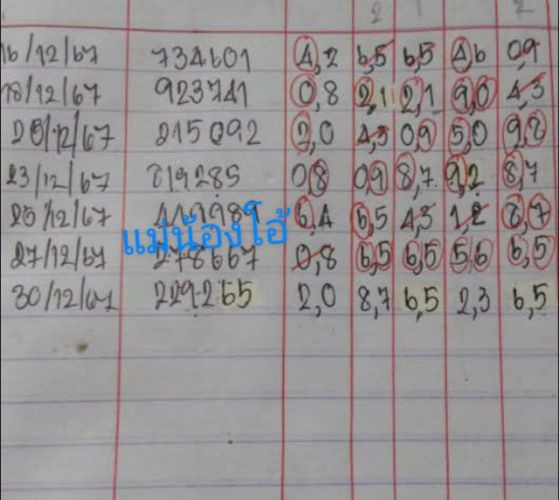 2 1 2
16/12/67 734601 4,2 6,5 6,5 4,6 0,9
18/12/67 923741 0,8 2,1 2,1 9,0 4,3
20/12/67 215092 2,0 4,3 0,9 5,0 9,8
23/12/67 819285 0,8 0,9 8,7 9,2 8,7
25/12/67 449989 6,4 6,5 4,3 1,2 8,7
แม่น้องโอ๋
27/12/67 278667 0,8 6,5 6,5 5,6 6,5
30/12/67 229265 2,0 8,7 6,5 2,3 6,5